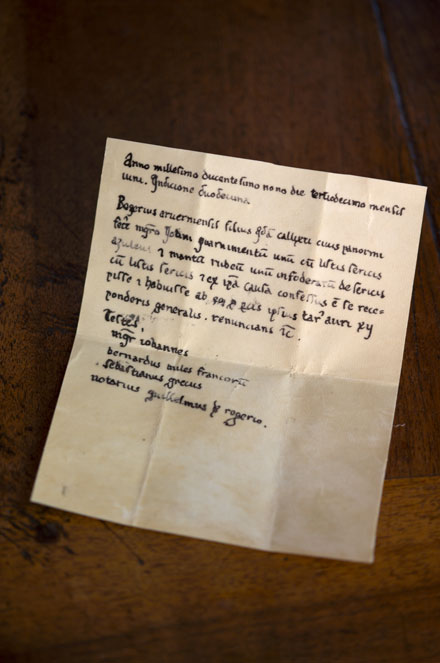 Anno millesimo ducentesimo nono die tertiodecimo mensis
iuni. Indicione duodecima
Rogerius filius qda calixti ciuis panormi
fecit mgro guarnimentu unu cu listis sericis
⁊ mantu rubeu unu infoderatu de sericis
cu listis sericis ⁊ ex ipa causa confessus e se rece-
pisse ⁊ habuisse ab eo ipsius tar auri xy
ponderis generalis. renuncians
Testes
mgr iohannes
bernardus miles francoru
sebastianus grecus
notarius guillelmus rogerio.